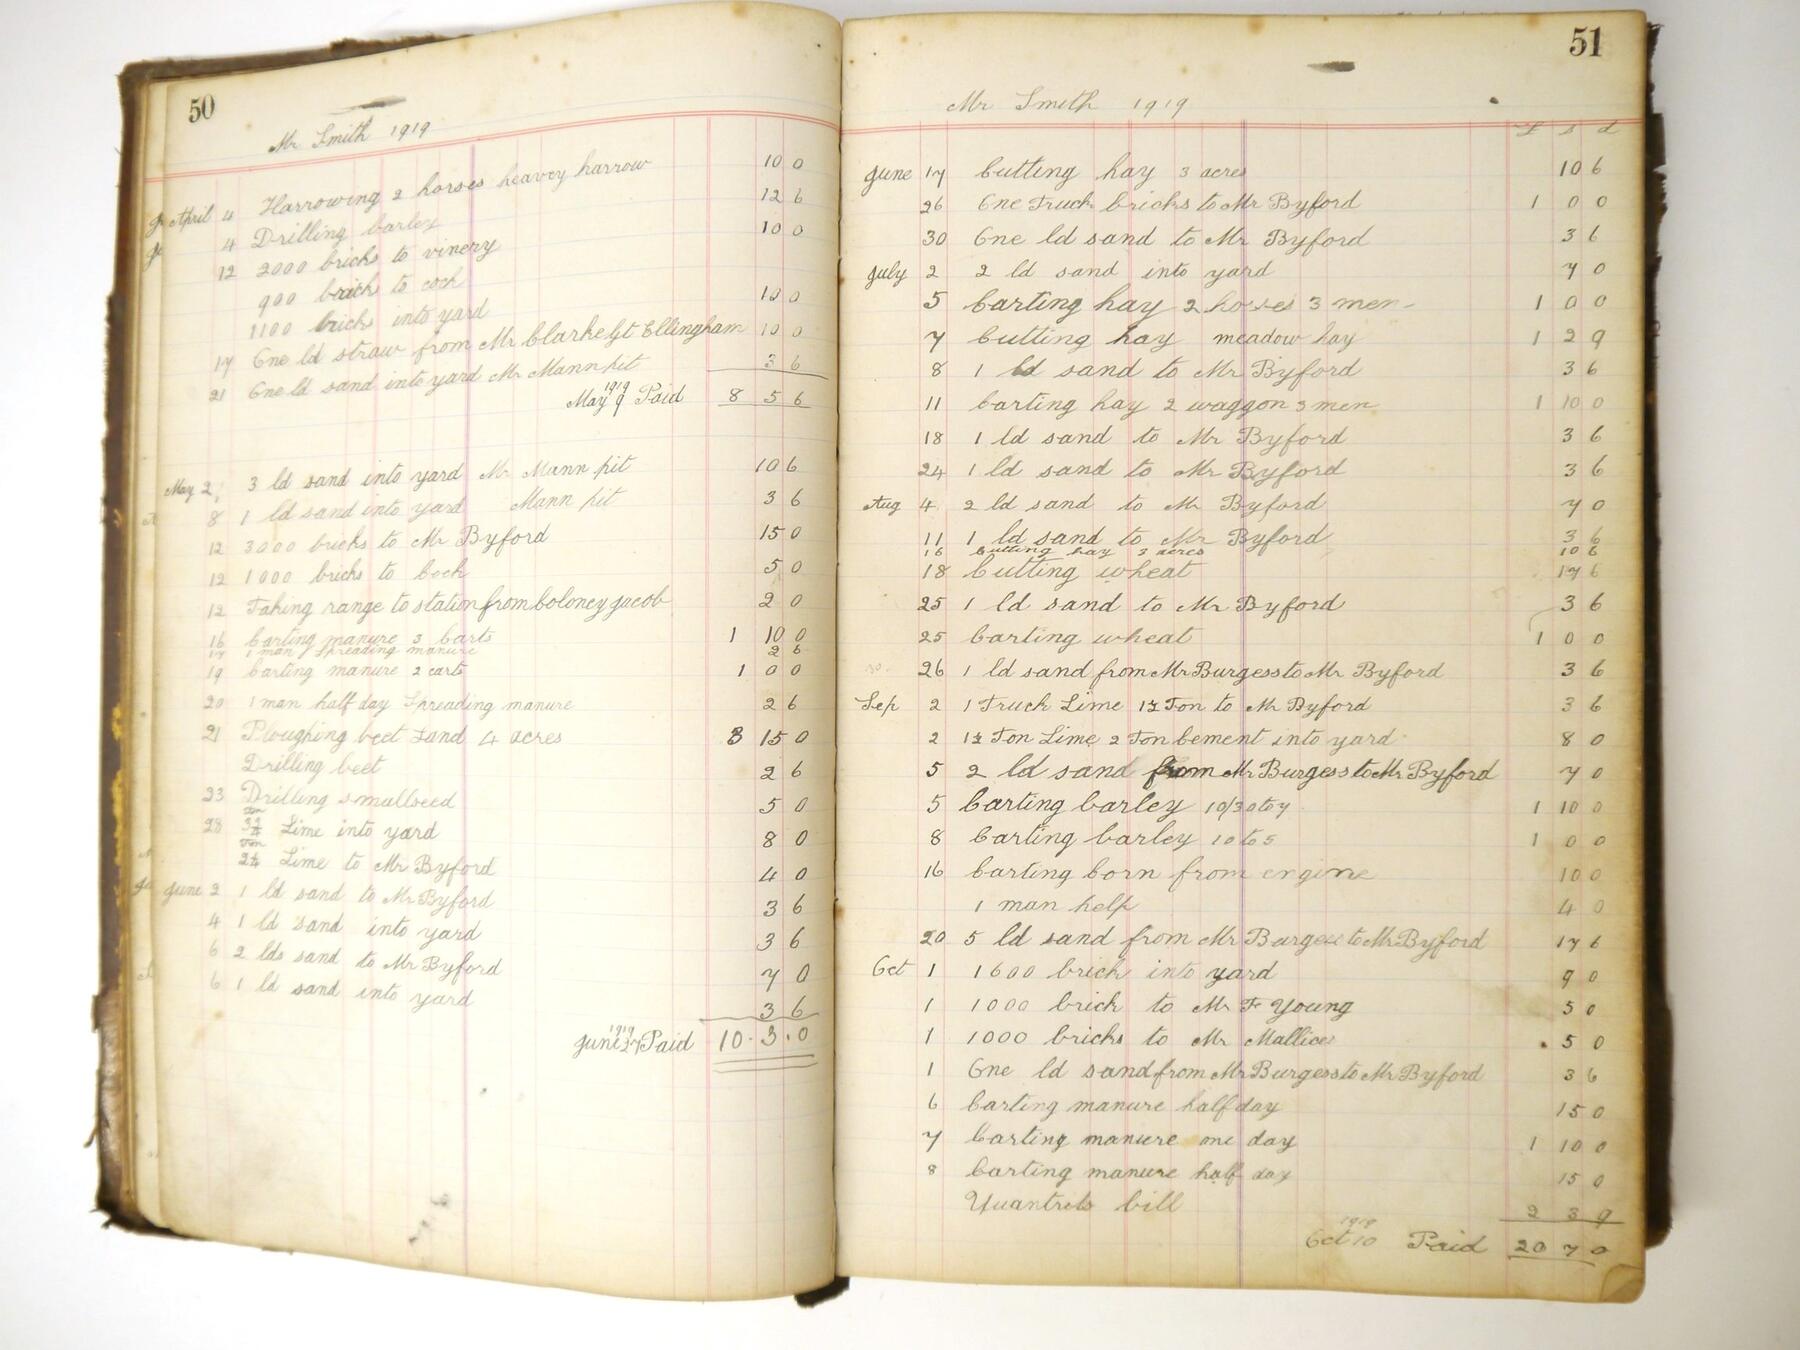 50
Mr Smith 1919
April 4 Harrowing 2 horses heavey harrow 10 0
4 Drilling barley 12 6
12 2000 bricks to vinery 10 0
900 brick to cock
1100 bricks into yard 10 0
17 One ld straw from Mr Clarke Gt Ellingham 10 0
21 One ld sand into yard Mr Mann pit 3 6
1919
May 9 Paid 8 5 6
May 2 3 ld sand into yard Mr Mann pit 10 6
8 1 ld sand into yard Mann pit 3 6
12 3000 bricks to Mr Byford 15 0
12 1000 bricks to Cock 5 0
12 Taking range to station from Coloney Jacob 2 0
16 Carting manure 3 Carts 1 10 0
17 1 man Spreading manure 2 6
19 Carting manure 2 carts 1 0 0
20 1 man half day Spreading manure 2 6
21 Ploughing beet Land 4 acres 3 15 0
Drilling beet 2 6
23 Drilling smallseed 5 0
28 Ton Lime into yard 8 0
Ton Lime to Mr Byford 4 0
June 2 1 ld sand to Mr Byford 3 6
4 1 ld sand into yard 3 6
6 2 lds sand to Mr Byford 7 0
6 1 ld sand into yard 3 6
1919
June 27 Paid 10 . 3 . 0
51
Mr Smith 1919
£ s d
June 17 Cutting hay 3 acres 10 6
26 One Truck bricks to Mr Byford 1 0 0
30 One ld sand to Mr Byford 3 6
July 2 2 ld sand into yard 7 0
5 Carting hay 2 horses 3 men 1 0 0
7 Cutting hay meadow hay 1 2 9
8 1 ld sand to Mr Byford 3 6
11 Carting hay 2 waggon 3 men 1 10 0
18 1 ld sand to Mr Byford 3 6
24 1 ld sand to Mr Byford 3 6
Aug 4 2 ld sand to Mr Byford 7 0
11 1 ld sand to Mr Byford 3 6
16 Cutting hay 3 acres 10 6
18 Cutting wheat 17 6
25 1 ld sand to Mr Byford 3 6
25 Carting wheat 1 0 0
26 1 ld sand from Mr Burgess to Mr Byford 3 6
Sep 2 1 Truck Lime 1½ Ton to Mr Byford 3 6
2 1½ Ton Lime 2 Ton Cement into yard 8 0
5 2 ld sand from Mr Burgess to Mr Byford 7 0
5 Carting barley 10/30 to 7 1 10 0
8 Carting barley 10 to 5 1 0 0
16 Carting Corn from engine 10 0
1 man help 4 0
20 5 ld sand from Mr Burgess to Mr Byford 17 6
Oct 1 1600 brick into yard 9 0
1 1000 brick to Mr F Young 5 0
1 1000 bricks to Mr Mallices 5 0
1 One ld sand from Mr Burgess to Mr Byford 3 6
6 Carting manure half day 15 0
7 Carting manure one day 1 10 0
8 Carting manure half day 15 0
Quantrels bill 2 3 9
1919
Oct 10 Paid 20 7 0